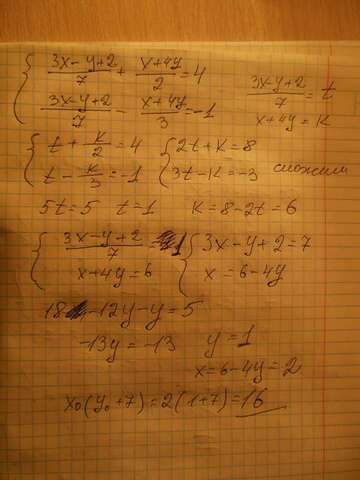 (3x-y+2)/7 + (x+4y)/2 = 4
(3x-y+2)/7 - (x+4y)/3 = -1
(3x-y+2)/7 = t
x+4y = k
t + k/2 = 4
t - k/3 = -1
2t+k=8
3t-k=-3
сложим
5t=5 t=1 k=8-2t=6
(3x-y+2)/7 = 1
x+4y=6
3x-y+2=7
x=6-4y
18-12y-y=5
-13y=-13 y=1
x=6-4y=2
x₀(y₀+7)=2(1+7)=16